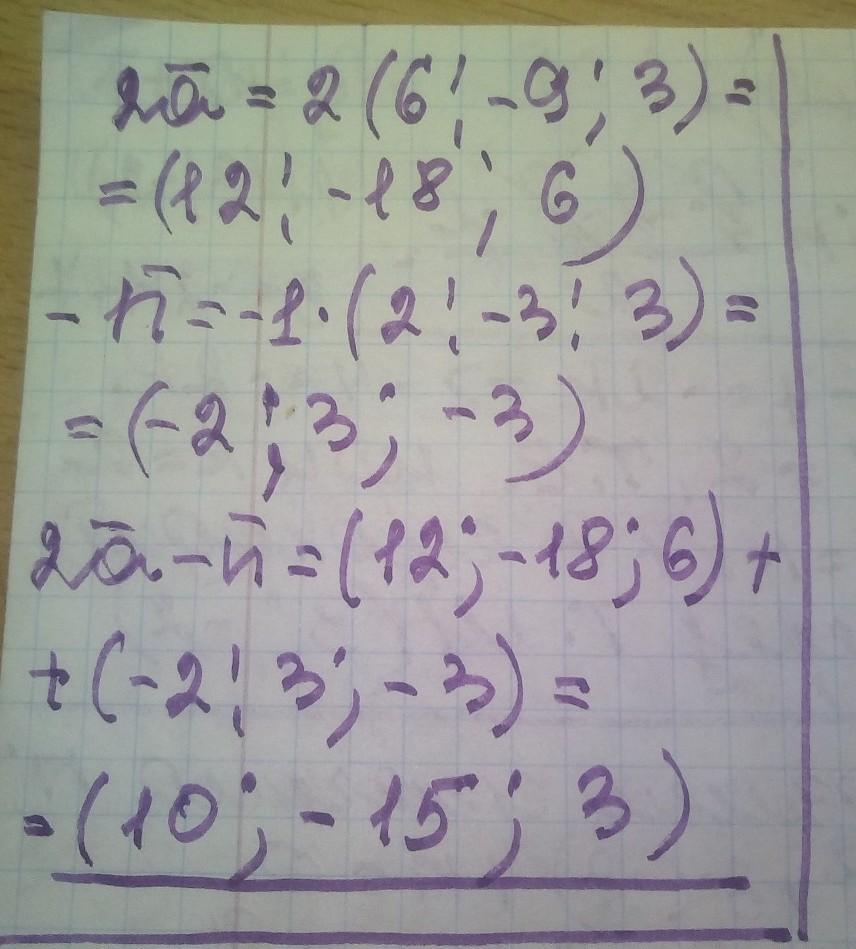 2a̅ = 2(6; -9; 3) =
= (12; -18; 6)
- n̅ = -1·(2; -3; 3) =
= (-2; 3; -3)
2a̅ - n̅ = (12; -18; 6) +
+ (-2; 3; -3) =
= (10; -15; 3)